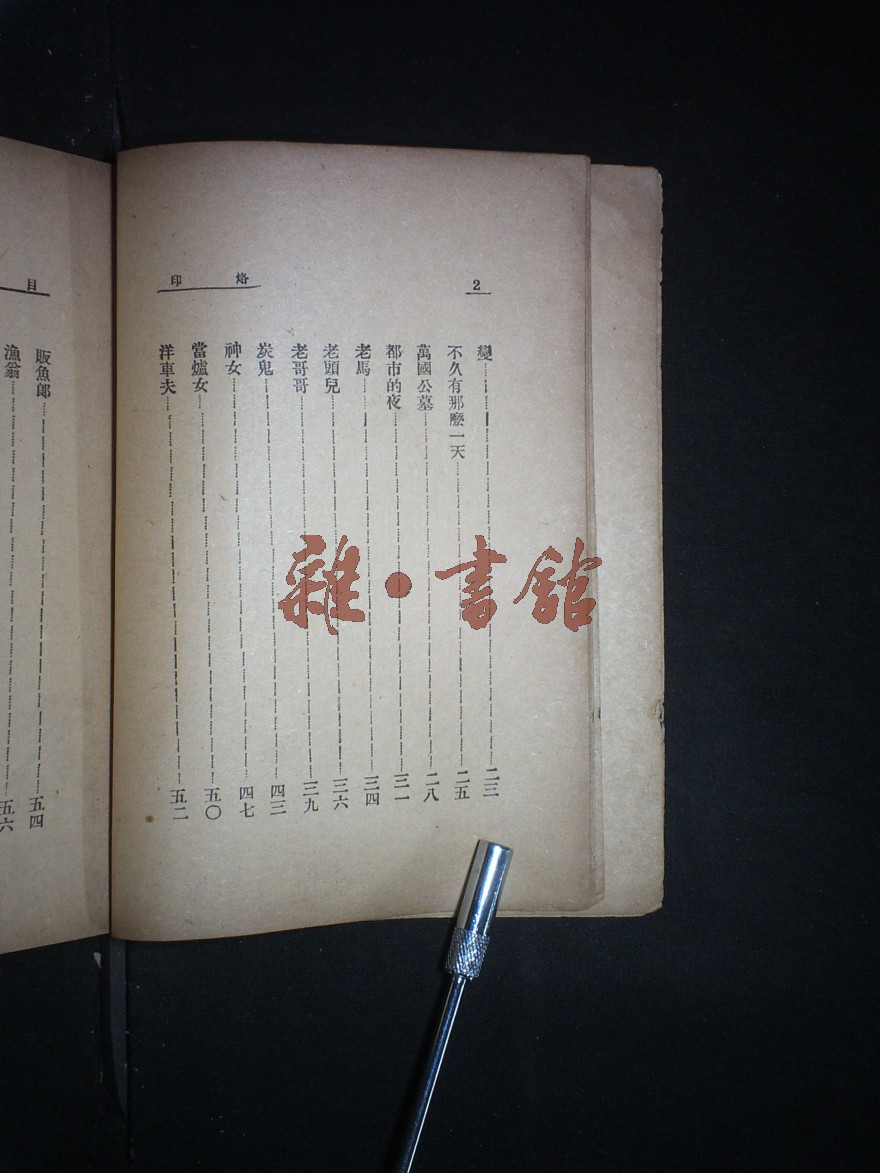 烙印
2
變 二三
不久有那麼一天 二五
萬國公墓 二八
都市的夜 三一
老馬 三四
老頭兒 三六
老哥哥 三九
炭鬼 四三
神女 四七
當爐女 五〇
洋車夫 五二
目
販魚郎 五四
漁翁 五六
雜·書館